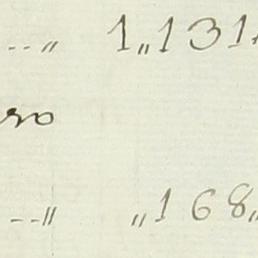 --„ 1„131
ro
--„ „168„